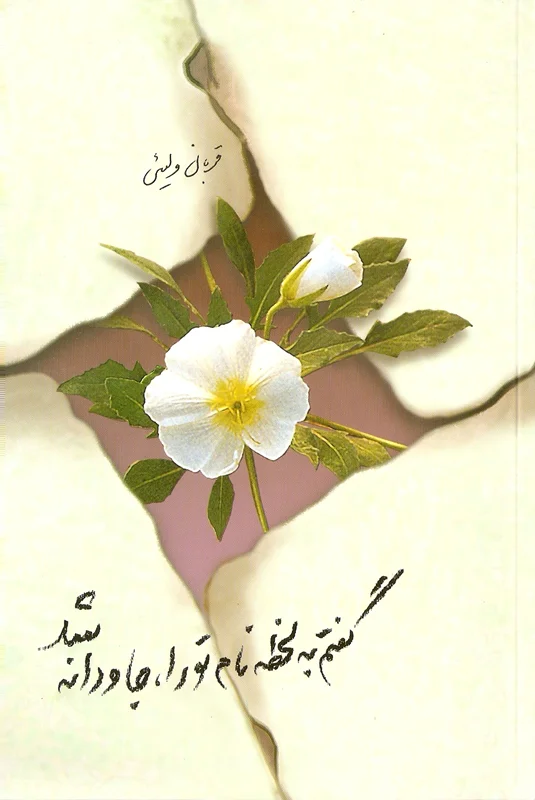 قربان ولیئی
گفتم به لحظه نام تو را، جاودانه
شد